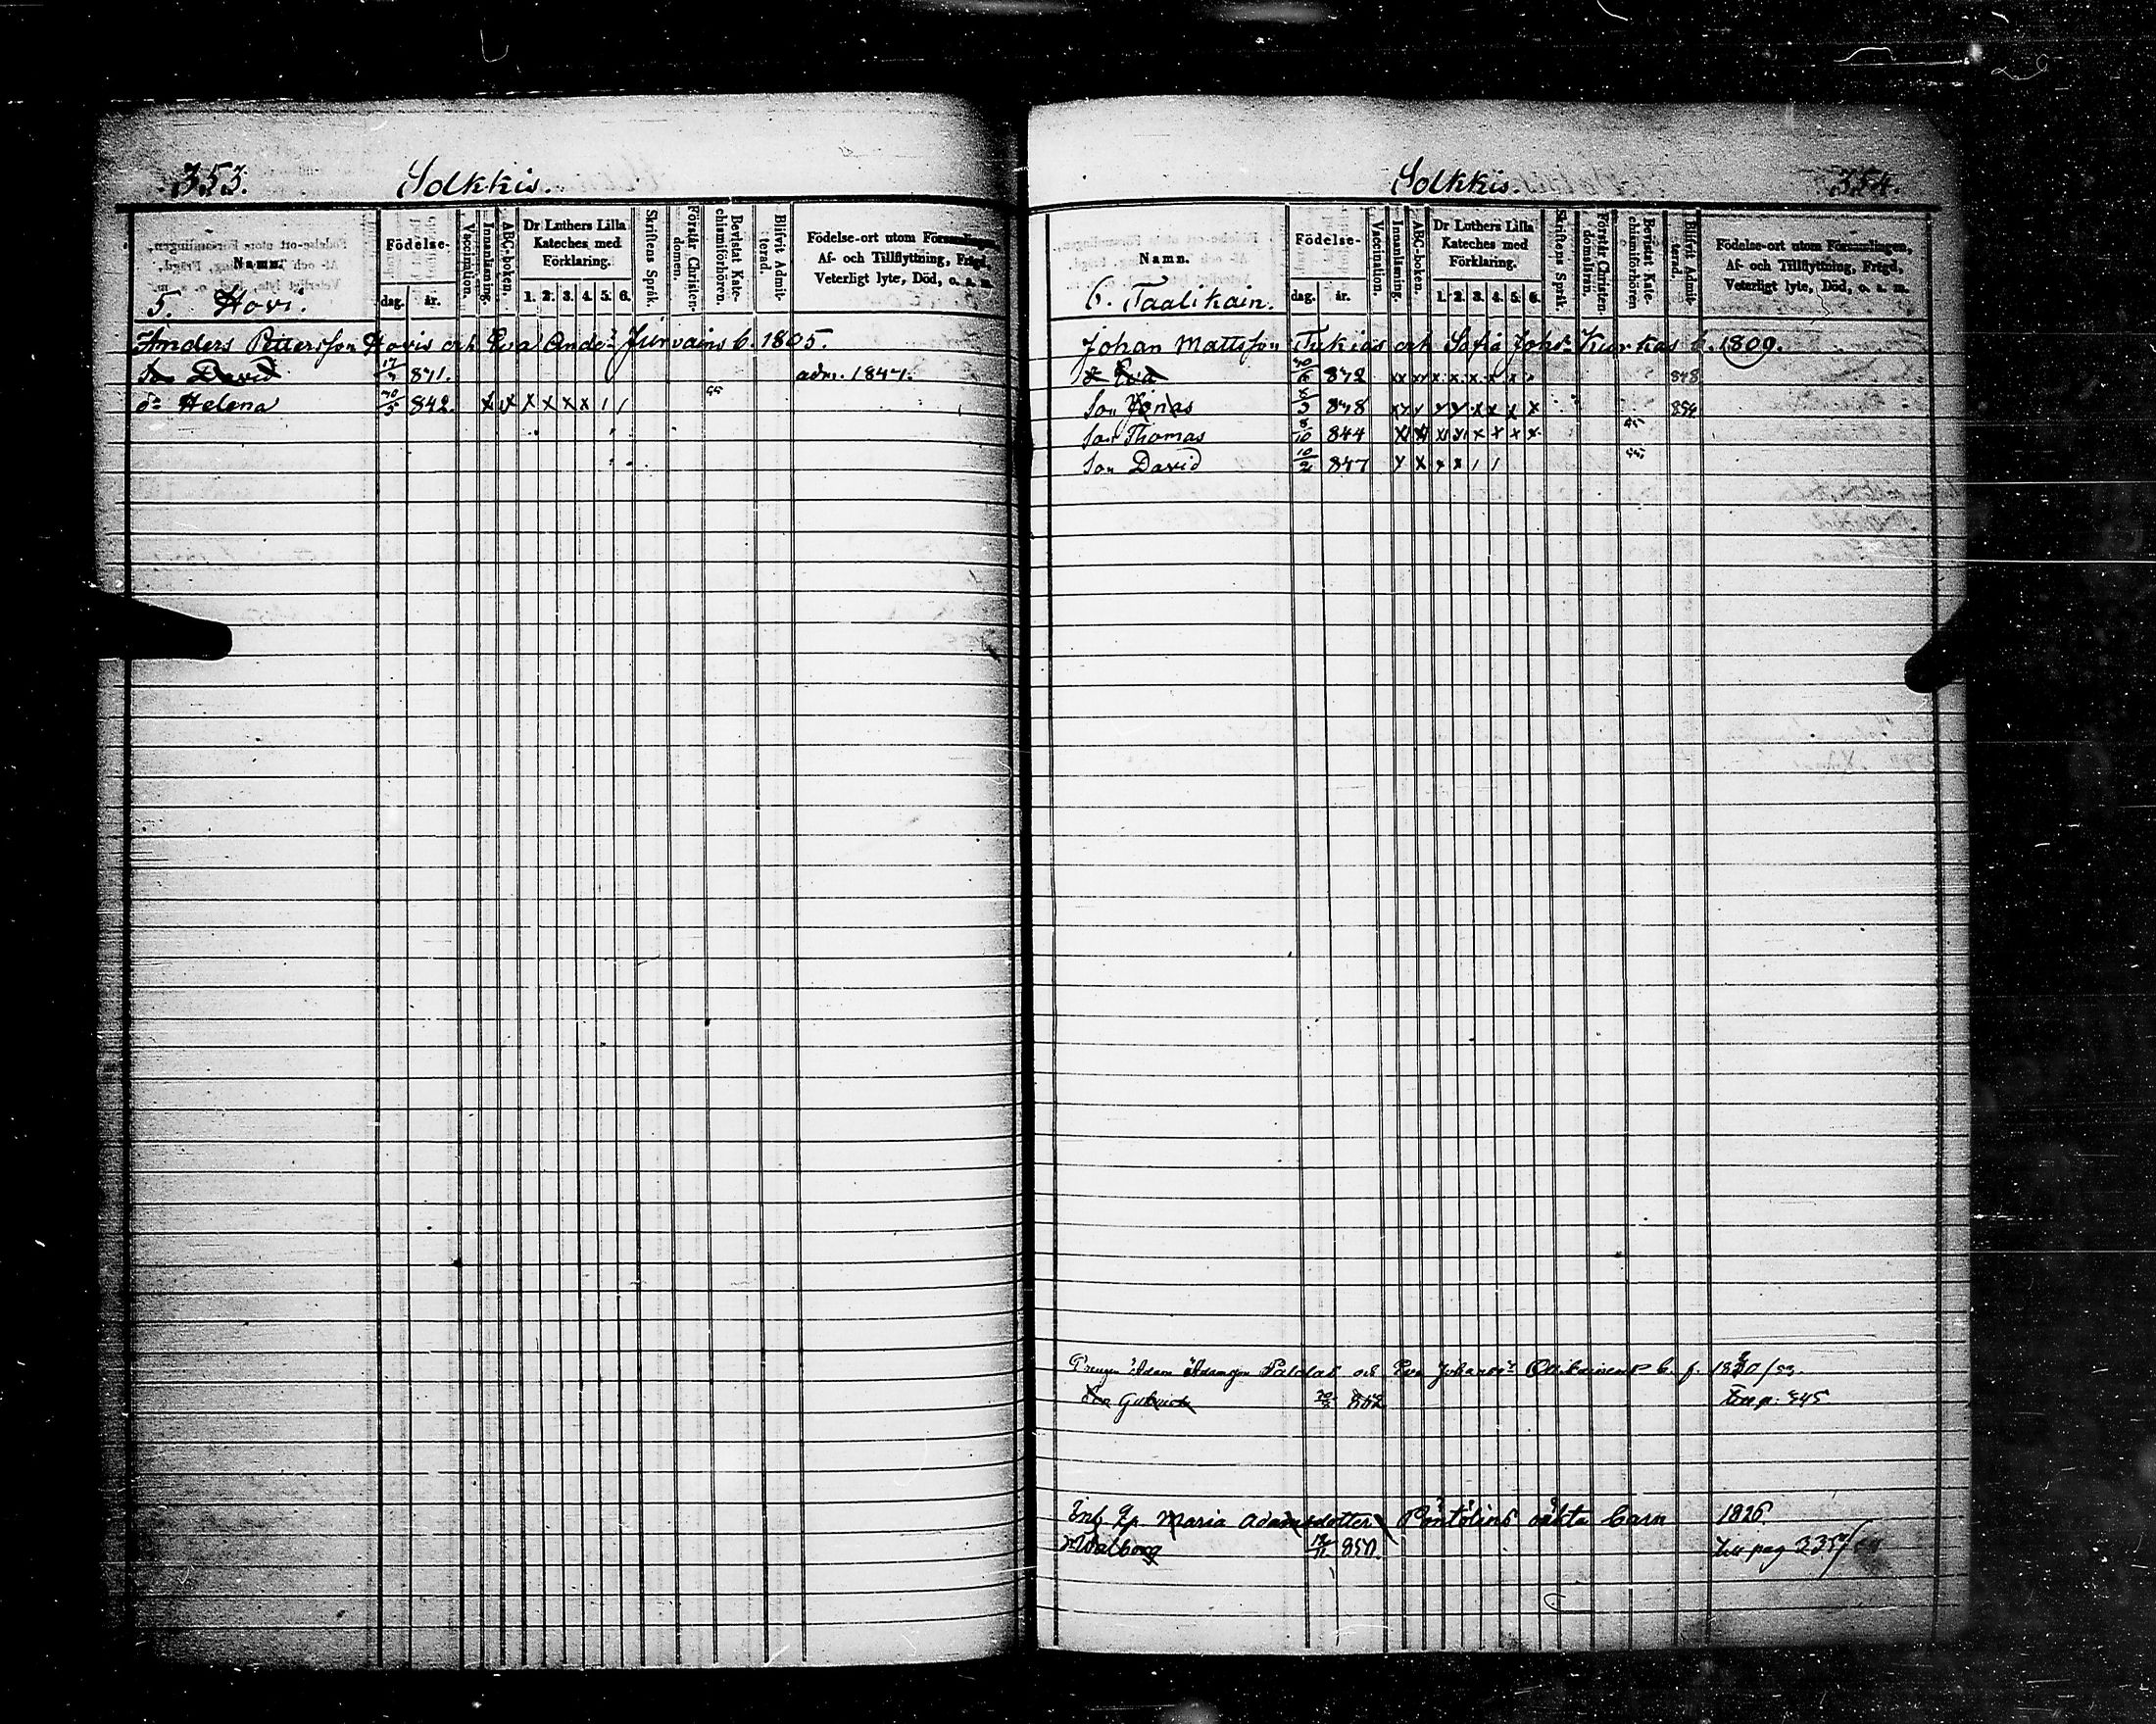 353.
Solkkis.
Namn.
Födelse-
dag.
år.
Vaccination.
Innanläsning.
ABC-boken.
Dr Luthers Lilla
Kateches med
Förklaring.
1. 2. 3. 4. 5. 6.
Skriftens Språk.
Förstår Christen-
domen.
Bevistat Kate-
chismiförhören.
Blifvit Admit-
terad.
Födelse-ort utom Församlingen,
Af- och Tillflyttning, Frägd,
Veterligt lyte, Död, o. s. m.
5. Hovi.
Anders Pettersson Hovis och Eva Andsr Jurvains b. 1805.
Son David 841. adm. 1847.
dr Helena 30/5 842. x x x x x x 1 1 55
Solkkis.
354.
Namn.
Födelse-
dag.
år.
Vaccination.
Innanläsning.
ABC-boken.
Dr Luthers Lilla
Kateches med
Förklaring.
1. 2. 3. 4. 5. 6.
Skriftens Språk.
Förstår Christen-
domsläran.
Bevistat Kate-
chismiförhören
Blifvit Admit-
terad.
Födelse-ort utom Församlingen,
Af- och Tillflyttning, Frägd,
Veterligt lyte, Död, o. s. m.
6. Taalikain.
Johan Mattsson Tukias och Sofia Johsr Kurkas b. 1809.
Eva 832 848
Son Jonas 8/3 838 854
Son Thomas 8/10 844
Son David 10/2 847 x x x x 1 1
Drengen Adam Adamsson och Eva Johansdr Ollikainens b. f.
Son 852 p. 345
Inh Maria Adamsdotter Pöntölins oäkta barn 1826
Walborg 850. till pag 235